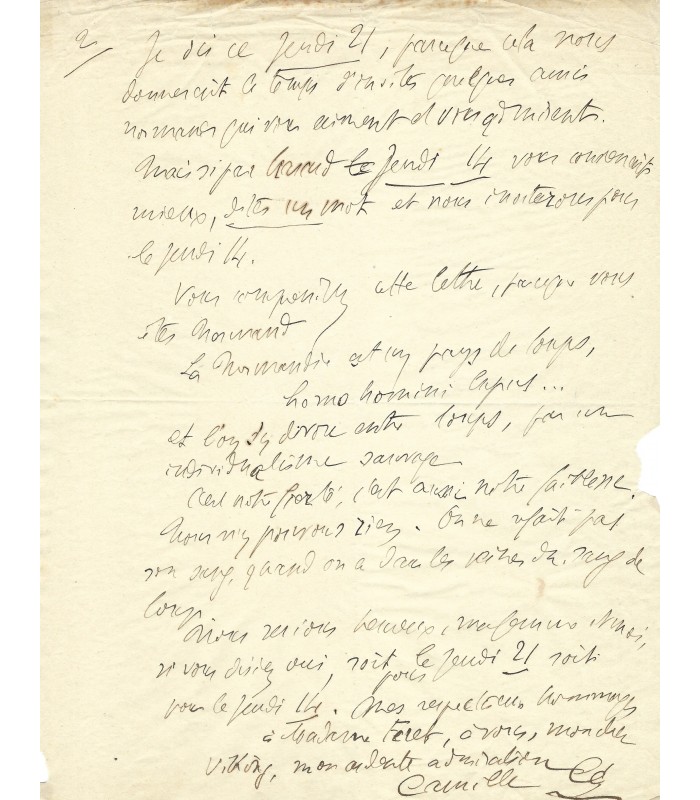 2/
Je dis ce Jeudi 21, parceque cela nous
donnerait le temps d'inviter quelques amis
normands qui vous aiment et vous admirent.
Mais si par hasard le Jeudi 14 vous convenait
mieux, dites un mot et nous inviterons pour
le Jeudi 14.
Vous comprenez cette lettre, parceque vous
êtes Normand
La Normandie est un pays de loups,
homo homini lupus...
et l'on s'y dévore entre loups, par un
individualisme sauvage
C'est notre fierté, c'est aussi notre faiblesse.
Nous n'y pouvons rien. On ne refait pas
son sang, quand on a dans les veines du sang de
loup.
Nous serions heureux, ma femme et moi,
si vous disiez oui, soit pour le Jeudi 21 soit
pour le Jeudi 14. Mes respectueux hommages
à Madame Féret, à vous, mon cher
Viking, mon ardente admiration
Camille Cé